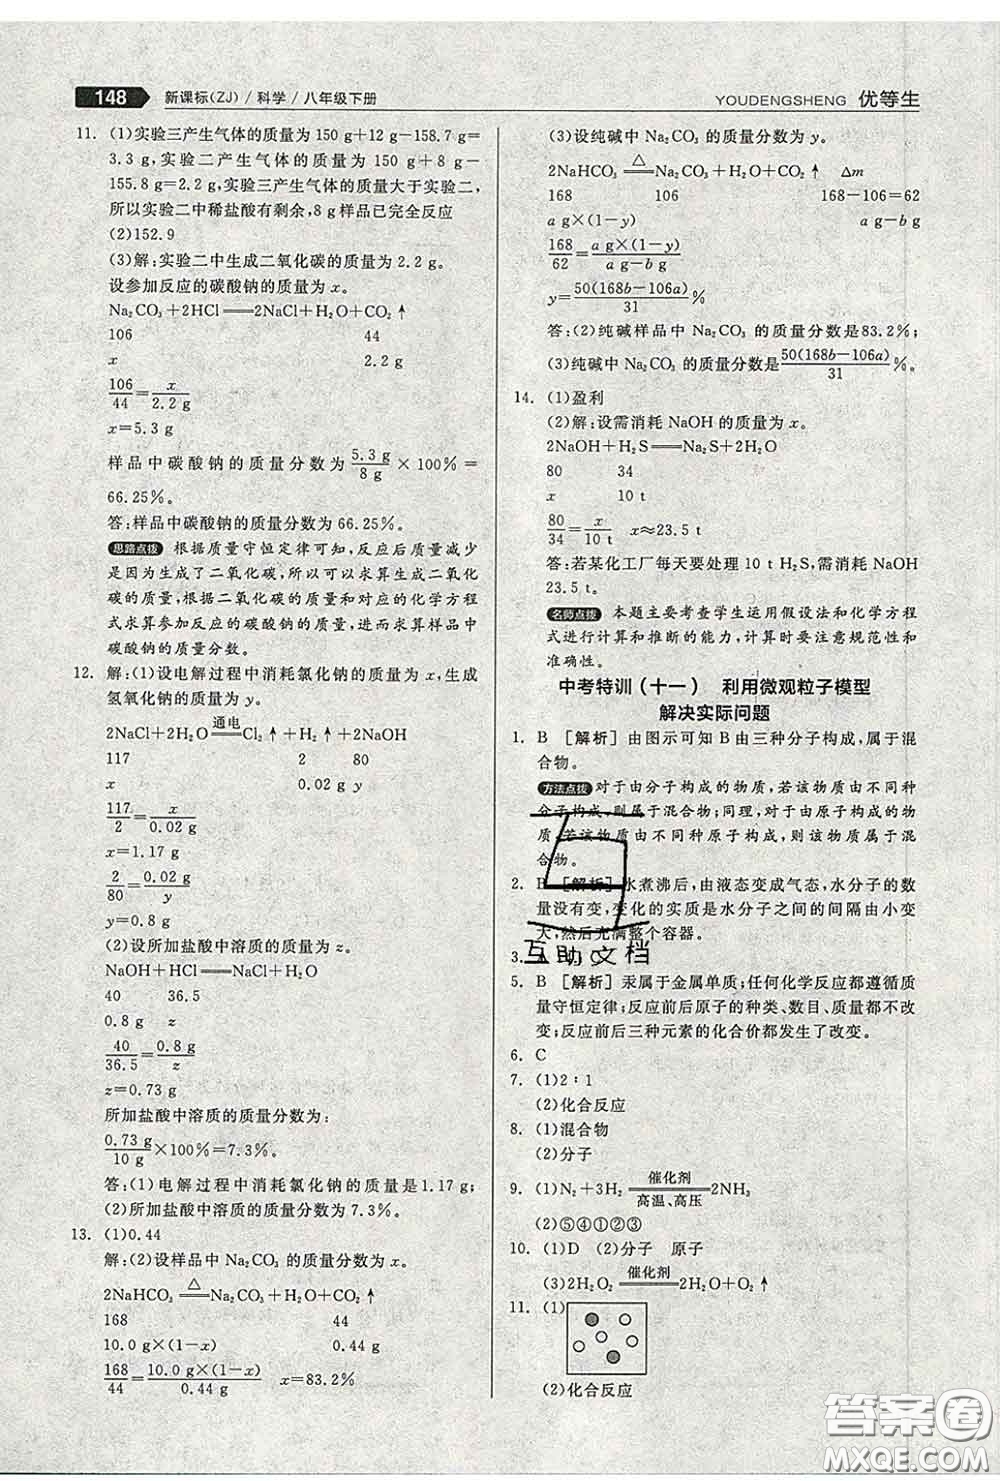 148 新课标(ZJ)/科学/八年级下册
YOUDENGSHENG 优等生
11. (1)实验三产生气体的质量为 150 g+12 g-158.7 g=
3.3 g,实验二产生气体的质量为 150 g+8 g-
155.8 g=2.2 g,实验三产生气体的质量大于实验二,
所以实验二中稀盐酸有剩余,8 g样品已完全反应
(2)152.9
(3)解:实验二中生成二氧化碳的质量为 2.2 g。
设参加反应的碳酸钠的质量为 x。
Na₂CO₃+2HCl══2NaCl+H₂O+CO₂↑
106 44
x 2.2 g
106/44=x/2.2 g
x=5.3 g
样品中碳酸钠的质量分数为 5.3 g/8 g×100%=
66.25%。
答:样品中碳酸钠的质量分数为 66.25%。
思路点拨 根据质量守恒定律可知,反应后质量减少
是因为生成了二氧化碳,所以可以求算生成二氧化
碳的质量,根据二氧化碳的质量可以结合化学方程
式求算参加反应的碳酸钠的质量,进而求算样品中
碳酸钠的质量分数。
12. 解:(1)设电解过程中消耗氯化钠的质量为 x,生成
氢氧化钠的质量为 y。
2NaCl+2H₂O══通电══Cl₂↑+H₂↑+2NaOH
117 2 80
x 0.02 g y
117/2=x/0.02 g
x=1.17 g
2/80=0.02 g/y
y=0.8 g
(2)设所加盐酸中溶质的质量为 z。
NaOH+HCl══NaCl+H₂O
40 36.5
0.8 g z
40/36.5=0.8 g/z
z=0.73 g
所加盐酸中溶质的质量分数为:
0.73 g/10 g×100%=7.3%。
答:(1)电解过程中消耗氯化钠的质量是 1.17 g;
(2)所加盐酸中溶质的质量分数为 7.3%。
13. (1)0.44
解:(2)设样品中 Na₂CO₃ 的质量分数为 x。
2NaHCO₃══△══Na₂CO₃+H₂O+CO₂↑
168 44
10.0 g×(1-x) 0.44 g
168/44=10.0 g×(1-x)/0.44 g x=83.2%
(3)设纯碱中 Na₂CO₃ 的质量分数为 y。
2NaHCO₃══△══Na₂CO₃+H₂O+CO₂↑ Δm
168 106 168-106=62
a g×(1-y) a g-b g
168/62=a g×(1-y)/a g-b g
y=50(168b-106a)/31%
答:(2)纯碱样品中 Na₂CO₃ 的质量分数是 83.2%;
(3)纯碱中 Na₂CO₃ 的质量分数是50(168b-106a)/31%。
14. (1)盈利
(2)解:设需消耗 NaOH 的质量为 x。
2NaOH+H₂S══Na₂S+2H₂O
80 34
x 10 t
80/34=x/10 t x≈23.5 t
答:若某化工厂每天要处理 10 t H₂S,需消耗 NaOH
23.5 t。
名师点拨 本题主要考查学生运用假设法和化学方程
式进行计算和推断的能力,计算时要注意规范性和
准确性。
中考特训(十一) 利用微观粒子模型
解决实际问题
1. B [解析] 由图示可知 B由三种分子构成,属于混
合物。
方法点拨 对于由分子构成的物质,若该物质由不同种
分子构成,则属于混合物;同理,对于由原子构成的物
质,若该物质由不同种原子构成,则该物质属于混
合物。
2. B [解析] 水煮沸后,由液态变成气态,水分子的数
量没有变,变化的实质是水分子之间的间隔由小变
大,然后充满整个容器。
3. A
5. B [解析] 汞属于金属单质;任何化学反应都遵循质
量守恒定律;反应前后原子的种类、数目、质量都不改
变;反应前后三种元素的化合价都发生了改变。
6. C
7. (1)2∶1
(2)化合反应
8. (1)混合物
(2)分子
9. (1)N₂+3H₂══催化剂/高温、高压══2NH₃
(2)⑤④①②③
10. (1)D (2)分子 原子
(3)2H₂O₂══催化剂══2H₂O+O₂↑
11. (1)
(2)化合反应
互助文档
答案圈
MXQE.COM